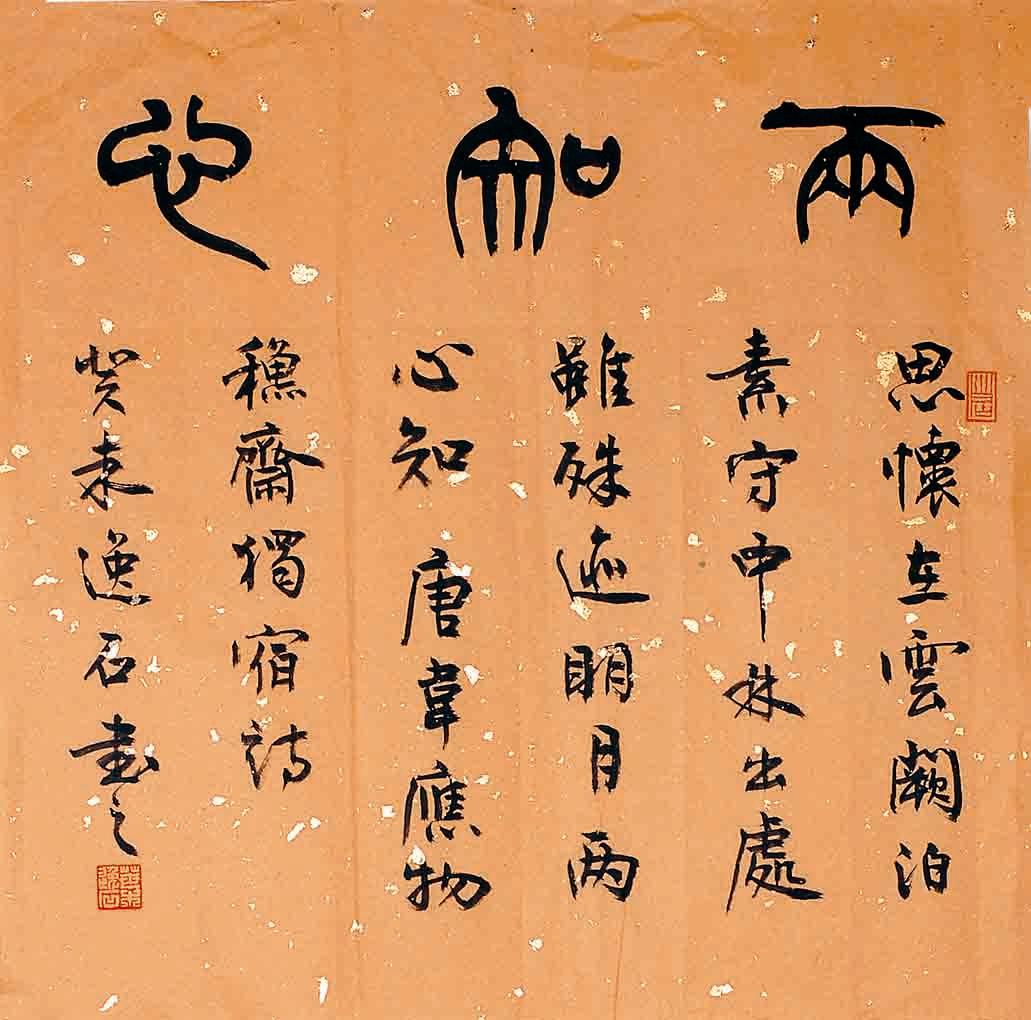 兩知心
思懷在雲闕泊
素守中林出處
雖殊迹明月两
心知 唐韋應物
穩齋獨宿詩
癸未逸石書之